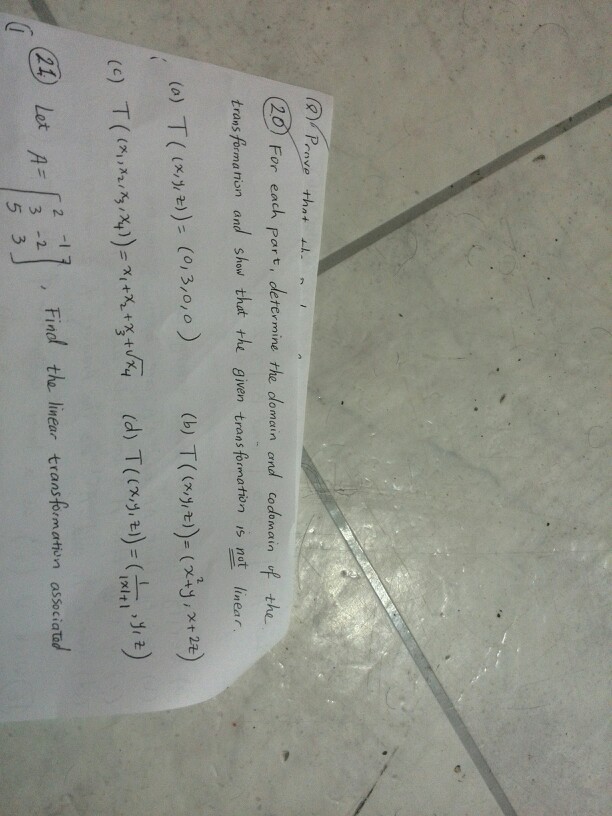 Prove that
(20) For each part, determine the domain and codomain of the
transformation and show that the given transformation is not linear.
(a) T((x,y,z)) = (0,3,0,0) (b) T((x,y,z)) = (x²+y, x+2z)
(c) T((x₁,x₂,x₃,x₄)) = x₁+x₂+x₃+√x₄ (d) T((x,y,z)) = (1/|x|+1, y, z)
(21) Let A = [2 -1
3 -2
5 3], Find the linear transformation associated